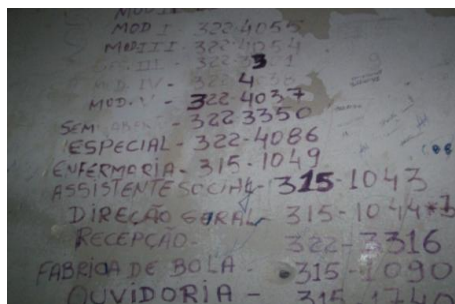 MOD I - 322-4055
MOD III - 322-4054
III - 322-
IV - 322-
MOD.V - 322-4037
SEMI ABER - 322 3350
ESPECIAL - 322-4086
ENFERMARIA - 315-1049
ASSISTENTE SOCIAL - 315-1043
DIREÇÃO GERAL - 315-1044
RECEPÇÃO - 322-3316
FABRICA DE BOLA - 315-1090
OUVIDORIA - 315-1740